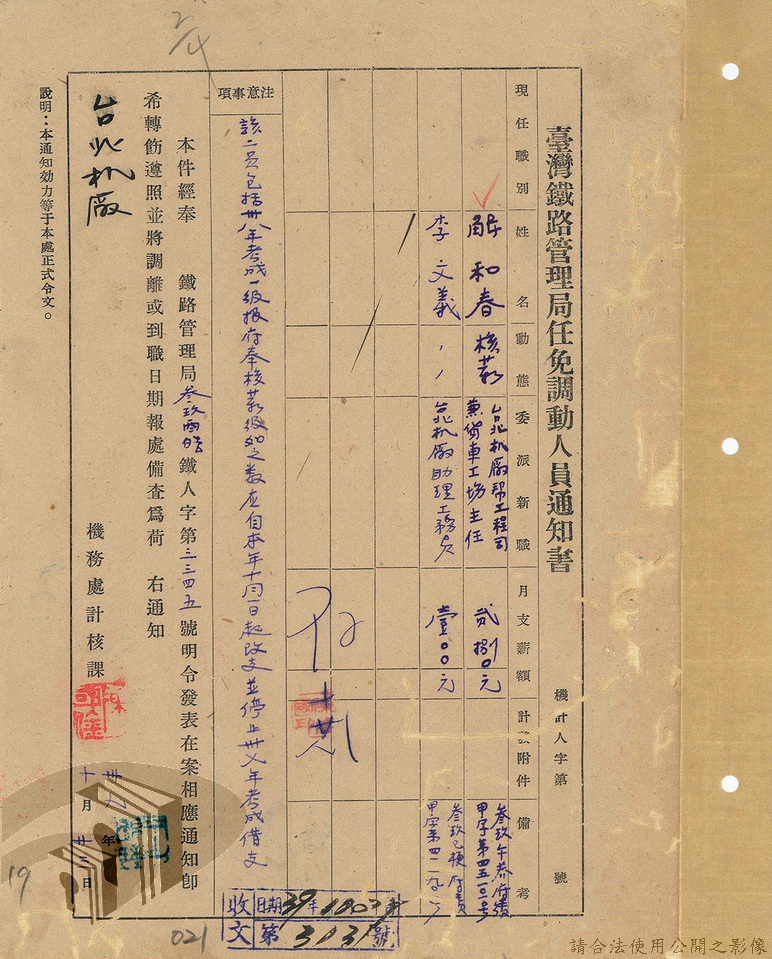 臺灣鐵路管理局任免調動人員通知書
機計人字第　　號
現任職別
姓名
動態
委派新職
月支薪額
計發附件
備考
解和春
核薪
台北机廠幇工程司
兼貨車工場主任
貳捌0元
叁玖午叅府績
甲字第四五一0一号
李文義
〃
台北机廠助理工務員
壹00元
注意事項
該二員包括卅八年考成一級报府奉核薪級如之数应自本年十月一日起改支並停止卅八年考成借支
本件經奉　鐵路管理局叁玖酉皓鐵人字第三三四五號明令發表在案相應通知卽
希轉飭遵照並將調離或到職日期報處備查爲荷　右通知
台北机廠
機務處計核課
卅九年
十月廿日
說明：本通知効力等于本處正式令文。
收文
日期39年
第3031號
021
19
請合法使用公開之影像